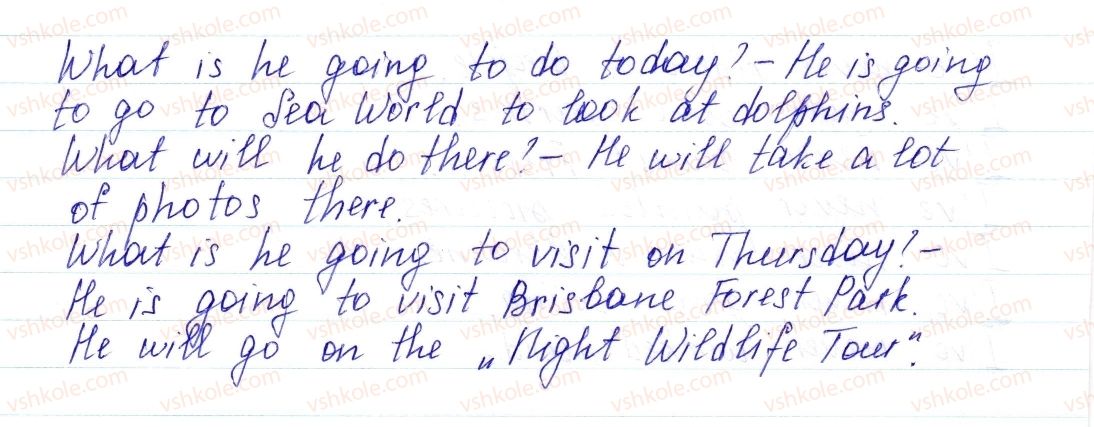 What is he going to do today? - He is going
to go to Sea World to look at dolphins.
What will he do there? - He will take a lot
of photos there.
What is he going to visit on Thursday? -
He is going to visit Brisbane Forest Park.
He will go on the „Night Wildlife Tour".